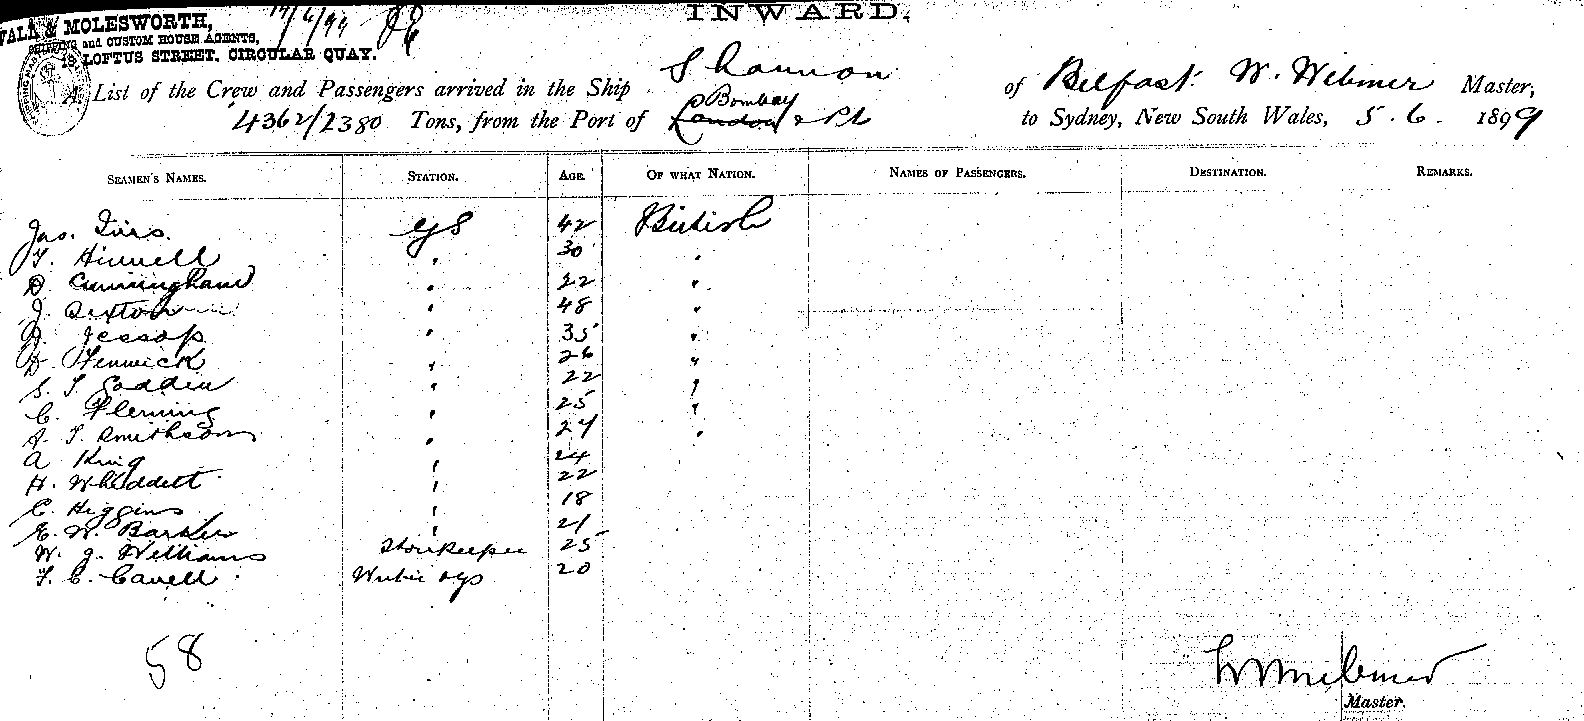 INWARD.
WALK & MOLESWORTH,
SHIPPING and CUSTOM HOUSE AGENTS,
19, LOFTUS STREET, CIRCULAR QUAY.
A List of the Crew and Passengers arrived in the Ship Shannon of Belfast W. Webmer Master,
4362/2380 Tons, from the Port of London Bombay & Pts to Sydney, New South Wales, 5.6.1899
SEAMEN'S NAMES. STATION. AGE. OF WHAT NATION. NAMES OF PASSENGERS. DESTINATION. REMARKS.
Jas. 42 British
30 "
D. Cunningham " 22 "
J. Sexton " 48 "
Jessop " 35 "
Fenwick " 26 "
S. T. " 22 "
C. Fleming " 25 "
A. T. Smithson " 27 "
A King " 24
H. Whiddett " 22
C. Higgins " 18
E. W. Barker " 21
W. J. Williams Storekeeper 25
T. C. Cavell 20
58
Master.